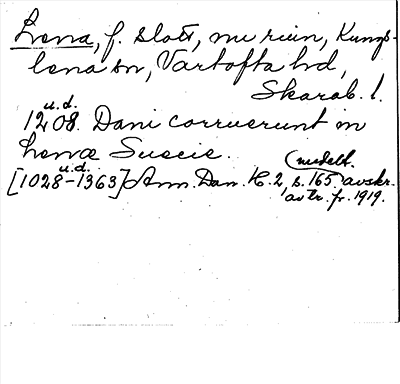 Lena, f. slott, nu ruin, Kungs-
lena sn, Vartofta hd,
Skarab. l.
u.d.
1208. Dani corruerunt in
Lenæ Suecie.
u.d. (medelt.
[1028-1363] Ann. Dan. H. 2, s. 165, avskr.
av tr. fr. 1919.